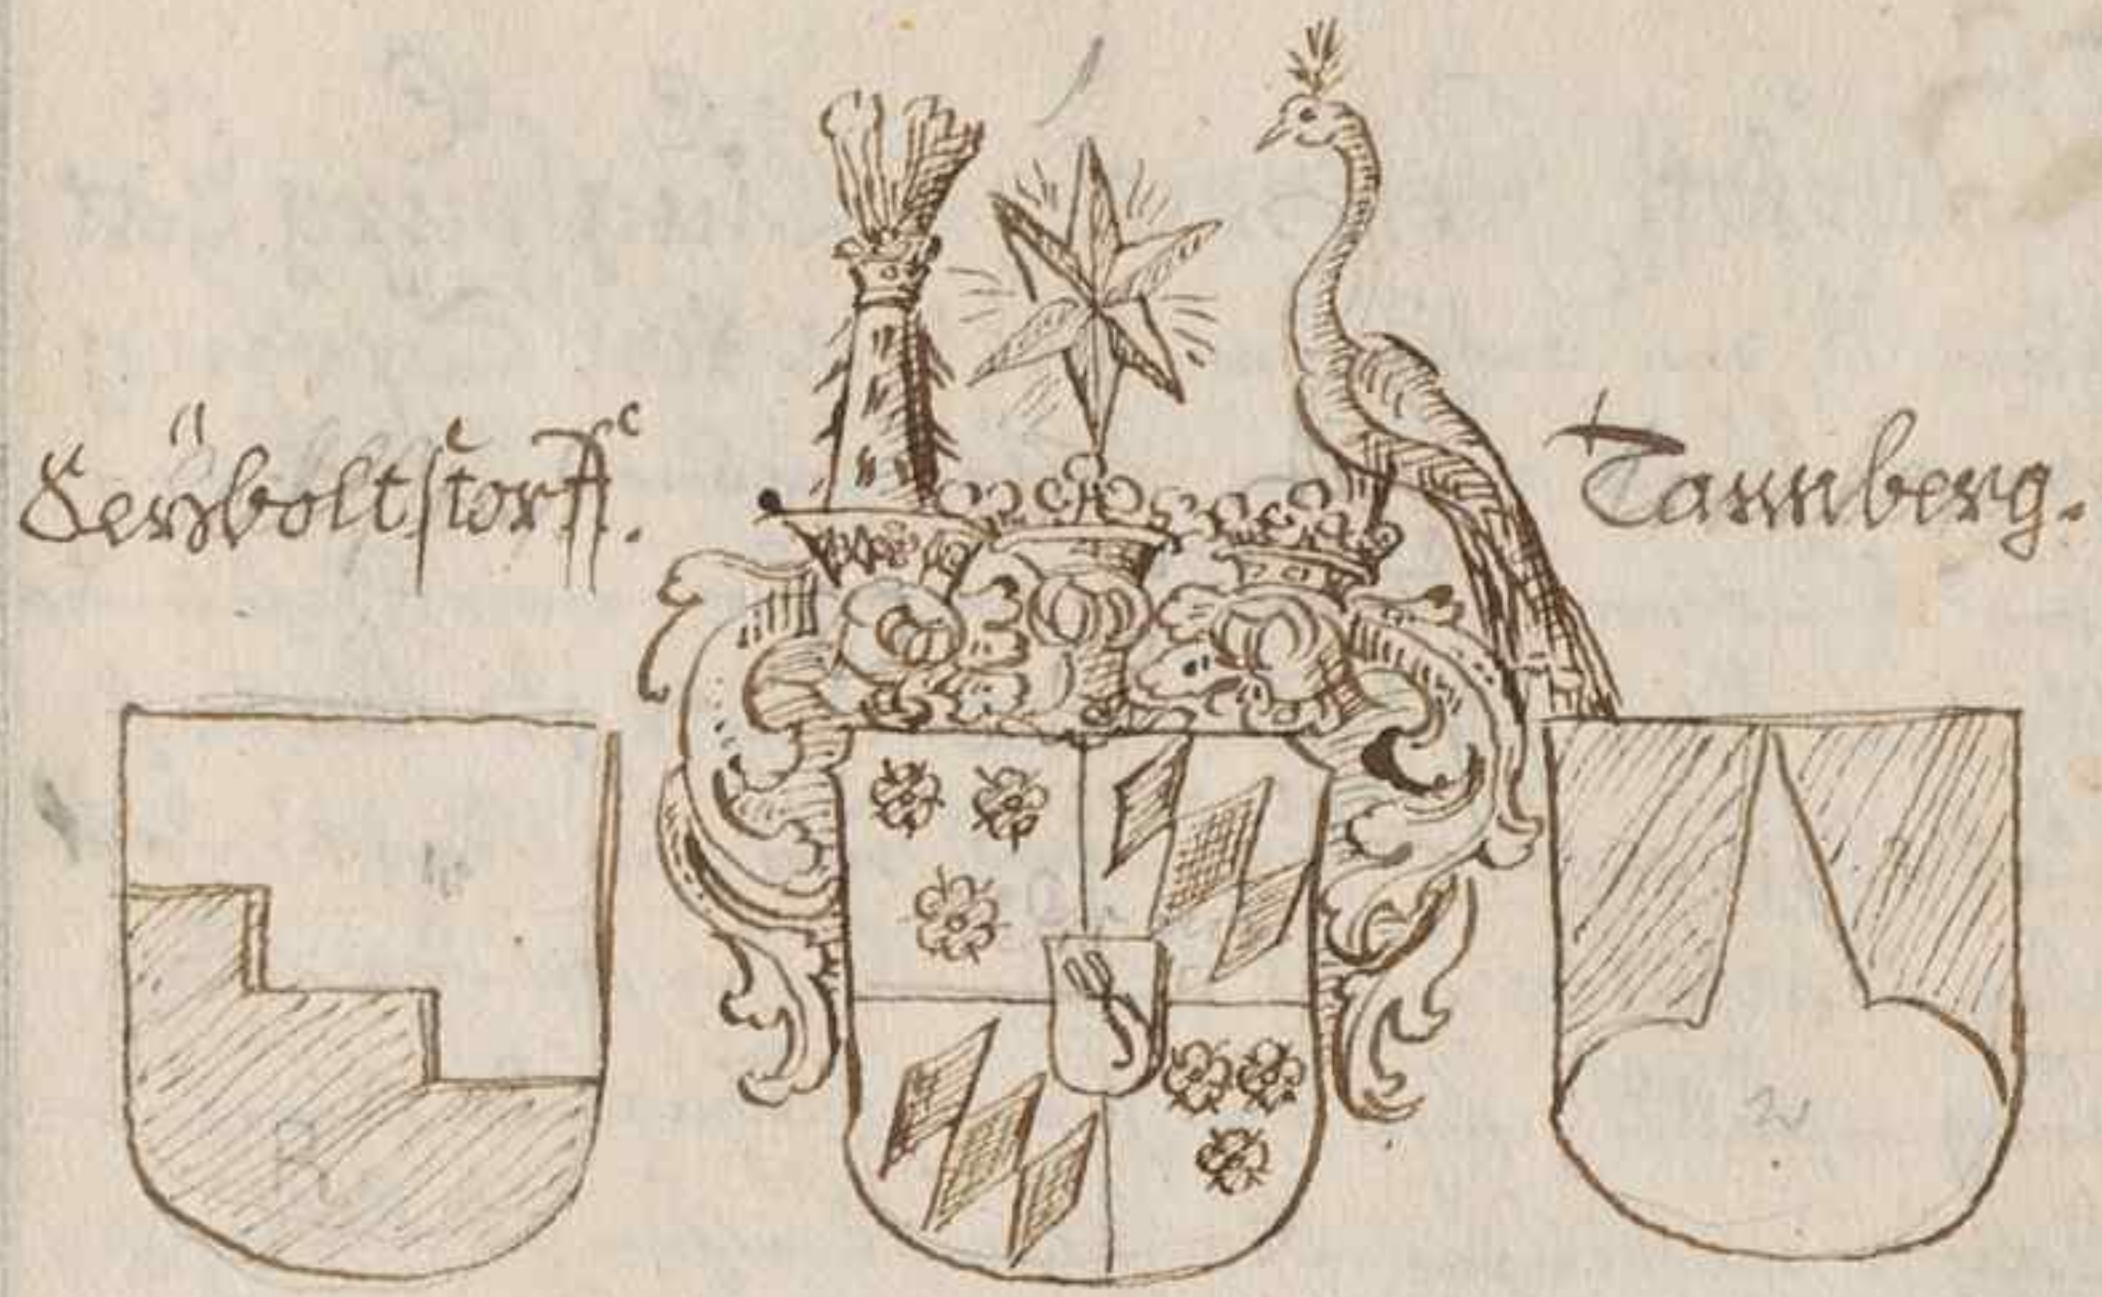 Seÿboltstorff.
Tannberg.
R
W